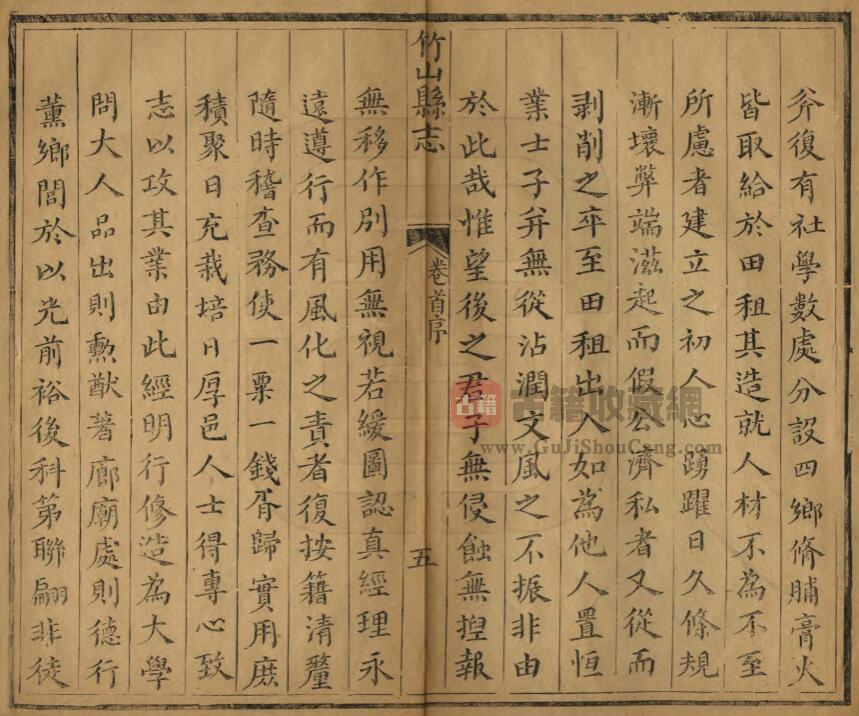 斧復有社學數處分設四鄉脩脯膏火
皆取給於田租其造就人材不為不至
所慮者建立之初人心踴躍日久條規
漸壞弊端滋起而假公濟私者又從而
剥削之卒至田租出入如為他人置恒
業士子弁無從沾潤文風之不振非由
於此哉惟望後之君子無侵蝕無揑報
竹山縣志
卷首序
五
無移作别用無視若緩圖認真經理永
遠遵行而有風化之責者復按籍清釐
隨時稽查務使一粟一錢胥歸實用庶
積聚日充栽培日厚邑人士得專心致
志以攻其業由此經明行修造為大學
問大人品出則勲猷著廊廟處則德行
薰鄉閭於以光前裕後科第聯翩非徒
古籍
古籍收藏網
www.GuJiShouCang.com